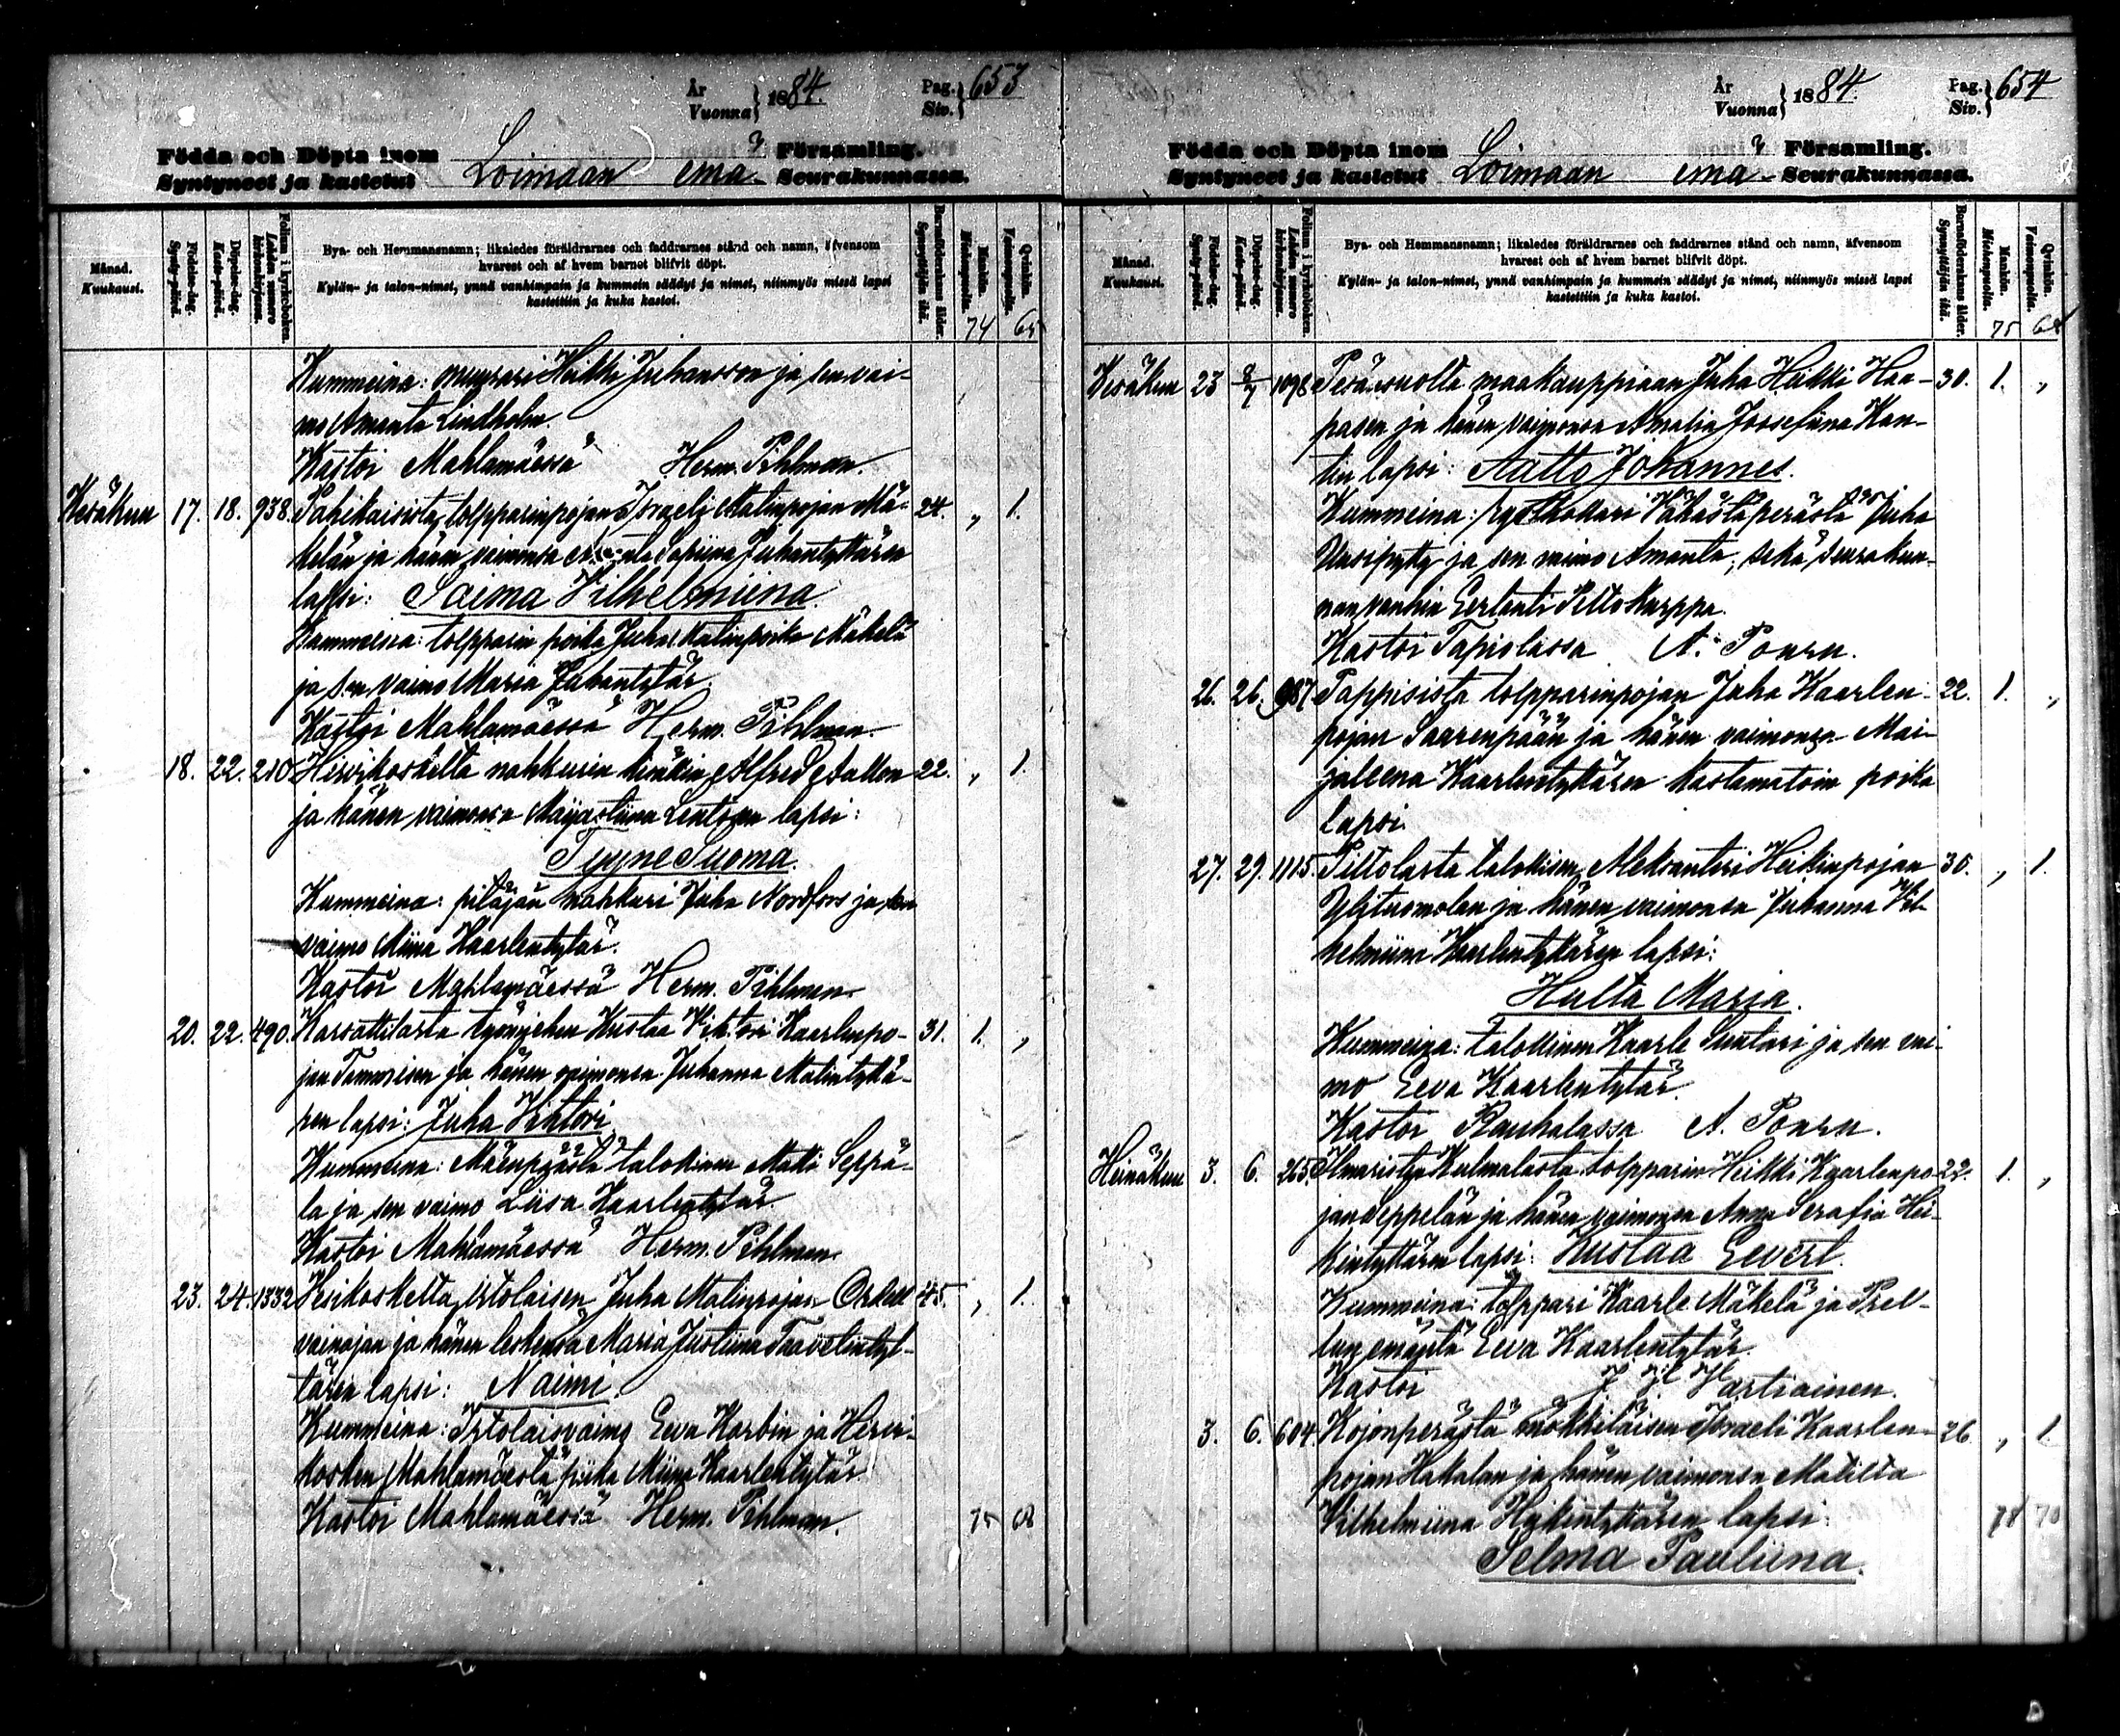 År Vuonna } 1884. Pag. Siv. } 653
Födda och Döpta inom Församling.
Syntyneet ja kastetut Loimaan emä- Seurakunnassa.
Månad. Kuukausi.
Födelse-dag. Synty-päivä.
Döpelse-dag. Kaste-päivä.
Folium i kyrkoboken. Lehden numero kirkonkirjassa.
Bya- och Hemmansnamn; likaledes föräldrarnes och faddrarnes stånd och namn, äfvensom
hvarest och af hvem barnet blifvit döpt.
Kylän- ja talon-nimet, ynnä vanhimpain ja kummein säädyt ja nimet, niinmyös missä lapsi
kastettiin ja kuka kastoi.
Barnaföderskans ålder. Synnyttäjän ikä.
Mankön. Miehenpuolta. 74
Qvinkön. Vaimonpuolta. 65
Kummeina: muurari Heikki Juhansson ja sen vai-
mo Amanta Lindholm.
Kastoi Mahlamäessä Herm. Pihlman.
Kesäkuu 17. 18. 938. tolpparinpojan Israeli Matinpojan Mä- 24. „ 1.
kelän ja hänen vaimonsa Sofiina Juhantyttären
lapsi: Saima Vilhelmiina.
Kummeina: tolpparin poika Juha Matinpoika Mäkelä
ja sen vaimo Maria Juhantytär.
Kastoi Mahlamäessä Herm. Pihlman.
18. 22. 210. Hirvikoskelta nahkurin Alfred Aallon 22. „ 1.
ja hänen vaimonsa Maijastiina lapsi:
Tyyne Suoma.
Kummeina: pitäjän nahkuri Juha Nordfors ja sen
vaimo Miina Kaarlentytär.
Kastoi Mahlamäessä Herm. Pihlman.
20. 22. 490. työmiehen Kustaa Vihtori Kaarlenpo- 31. 1. „
jan Tammisen ja hänen vaimonsa Juhanna Matintyttä-
ren lapsi: Juha Vihtori.
Kummeina: Mäenpäästä talollinen Matti Seppä-
lä ja sen vaimo Liisa Kaarlentytär.
Kastoi Mahlamäessä Herm. Pihlman.
23. 24. 1332 Vesikoskelta itsolaisen Juha Matinpojan 45. „ 1.
vainajan ja hänen leskensä Maria Justiina Taavetintyt-
tären lapsi: Naimi.
Kummeina: Irtolaisvaimo Eeva Korbin ja Hirvi-
kosken Mahlamäestä piika Miina Kaarlentytär
Kastoi Mahlamäessä Herm. Pihlman. 75 68
År Vuonna } 1884. Pag. Siv. } 654
Födda och Döpta inom Församling.
Syntyneet ja kastetut Loimaan emä- Seurakunnassa.
Månad. Kuukausi.
Födelse-dag. Synty-päivä.
Döpelse-dag. Kaste-päivä.
Folium i kyrkoboken. Lehden numero kirkonkirjassa.
Bya- och Hemmansnamn; likaledes föräldrarnes och faddrarnes stånd och namn, äfvensom
hvarest och af hvem barnet blifvit döpt.
Kylän- ja talon-nimet, ynnä vanhimpain ja kummein säädyt ja nimet, niinmyös missä lapsi
kastettiin ja kuka kastoi.
Barnaföderskans ålder. Synnyttäjän ikä.
Mankön. Miehenpuolta. 75
Qvinkön. Vaimonpuolta. 68
Kesäkuu 23 8/7 1098 Peräsuolta maakauppiaan Juha Heikki Haa- 30. 1. „
pasen ja hänen vaimonsa Amalia Joosefiina Kan-
tin lapsi: Aatto Johannes.
Kummeina: Vähästäperästä Juha
Uusipytty ja sen vaimo Amanta, sekä seurakun-
nanvanhin Eerlanti Peltokurppa.
Kastoi Tapiolassa A. Ponru.
26. 26. 987 Pappisista tolpparinpojan Juha Kaarlen- 22. 1. „
pojan Saarenpään ja hänen vaimonsa Mai-
jaleena Kaarlentyttären kastamatoin poika
lapsi.
27. 29. 1115. Peltolasta talollisen Aleksanteri Heikinpojan 30. „ 1.
Ylituomolan ja hänen vaimonsa Juhanna Vil-
helmiina Kaarlentyttären lapsi:
Hulta Maria.
Kummeina: talollinen Kaarle Suntari ja sen vai-
mo Eeva Kaarlentytär.
Kastoi Rauhalassa A. Ponru.
Heinäkuu 3. 6. 265. Ilmarista Kulmalasta tolpparin Heikki Kaarlenpo- 22. 1. „
jan Seppelän ja hänen vaimonsa Anna Serafia Hei-
kintyttären lapsi: Kustaa Eevert.
Kummeina: tolppari Kaarle Mäkelä ja
emäntä Eeva Kaarlentytär.
Kastoi Vartiainen.
3. 6. 604. Kojonperästä mökkiläisen Israeli Kaarlen- 26. „ 1.
pojan Hakalan ja hänen vaimonsa Matilta
Vilhelmiina Heikintyttären lapsi: 78 70
Selma Pauliina.